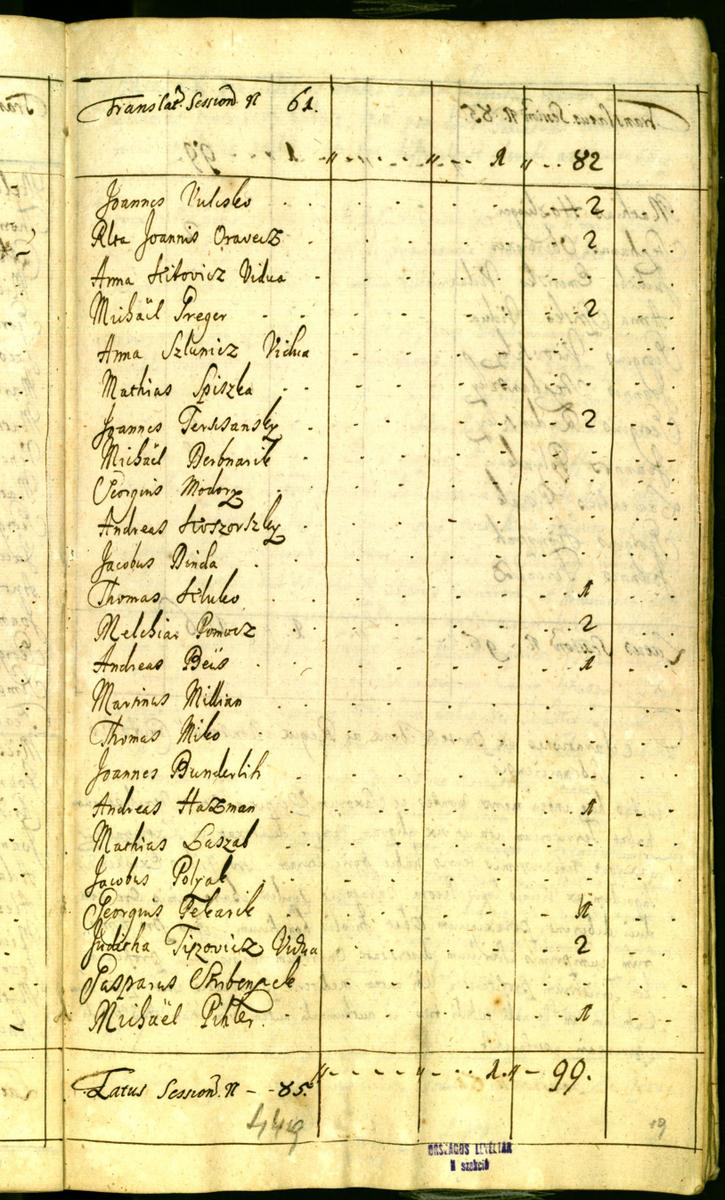 Translat. Session. N 61. " - - - - " - - 1 " - - 82
Joannes Vulisko - - - - 2
Rlta Joannis Oravecz - - - - 2
Anna Hitovicz Vidua - - - -
Michäel Preger - - - - 2
Anna Szlunicz Vidua - - - -
Mathias Spiszka - - - -
Joannes Terssansky - - - - 2
Michäel Berbnarik - - - -
Georgius Modory - - - -
Andreas Koszorszky - - - -
Jacobus Binda - - - -
Thomas Hluko - - - - 1
Melchiar Pomocz - - - - 2
Andreas Beüs - - - - 1
Martinus Millian - - - -
Thomas Miko - - - -
Joannes Bunderlih - - - -
Andreas Haszman - - - - 1
Mathias Laszab - - - -
Jacobus Poljak - - - -
Georgius Pekarik - - - - 1
Juditha Tipovicz Vidua - - - - 2
Gasparus Skrbenack - - - -
Michäel Pihler - - - - 1
Latus Session. N - - 85. " - - - - " - - - 1. " - 99.
449
19
ORSZÁGOS LEVÉLTÁR
N szekció